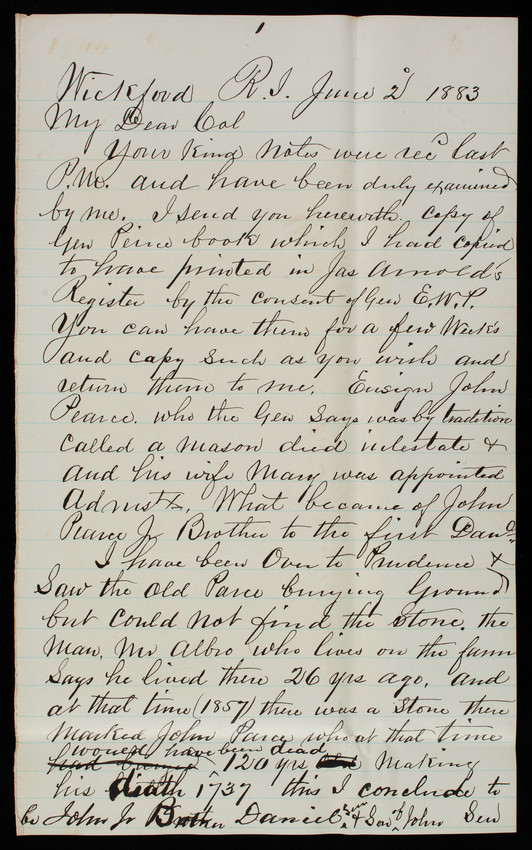 1
Wickford R.I. June 2d 1883
My Dear Col
Your kind notes were recd last
P.M. and have been duly examined
by me. I send you herewith copy of
Gen Peirce book which I had copied
to have printed in Jas Arnold's
Register by the consent of Gen E.W.P.
You can have them for a few Weeks
and copy such as you wish and
return them to me. Ensign John
Pearce. who the Gen says was by tradition
called a mason died intestate &
and his wife Mary was appointed
Admstx. What became of John
Pearce Jr Brother to the first Danl.
I have been Over to Prudence &
Saw the old Parce burying Ground
but could not find the stone. the
Man, Mr Albro who lives on the farm
Says he lived there 26 yrs ago, and
at that time (1857) there was a Stone there
Marked John Pearce who at that time
would have been dead
120 yrs Making
his death 1737 this I conclude to
be John Jr Brother Daniel Sen & Son of John Sen